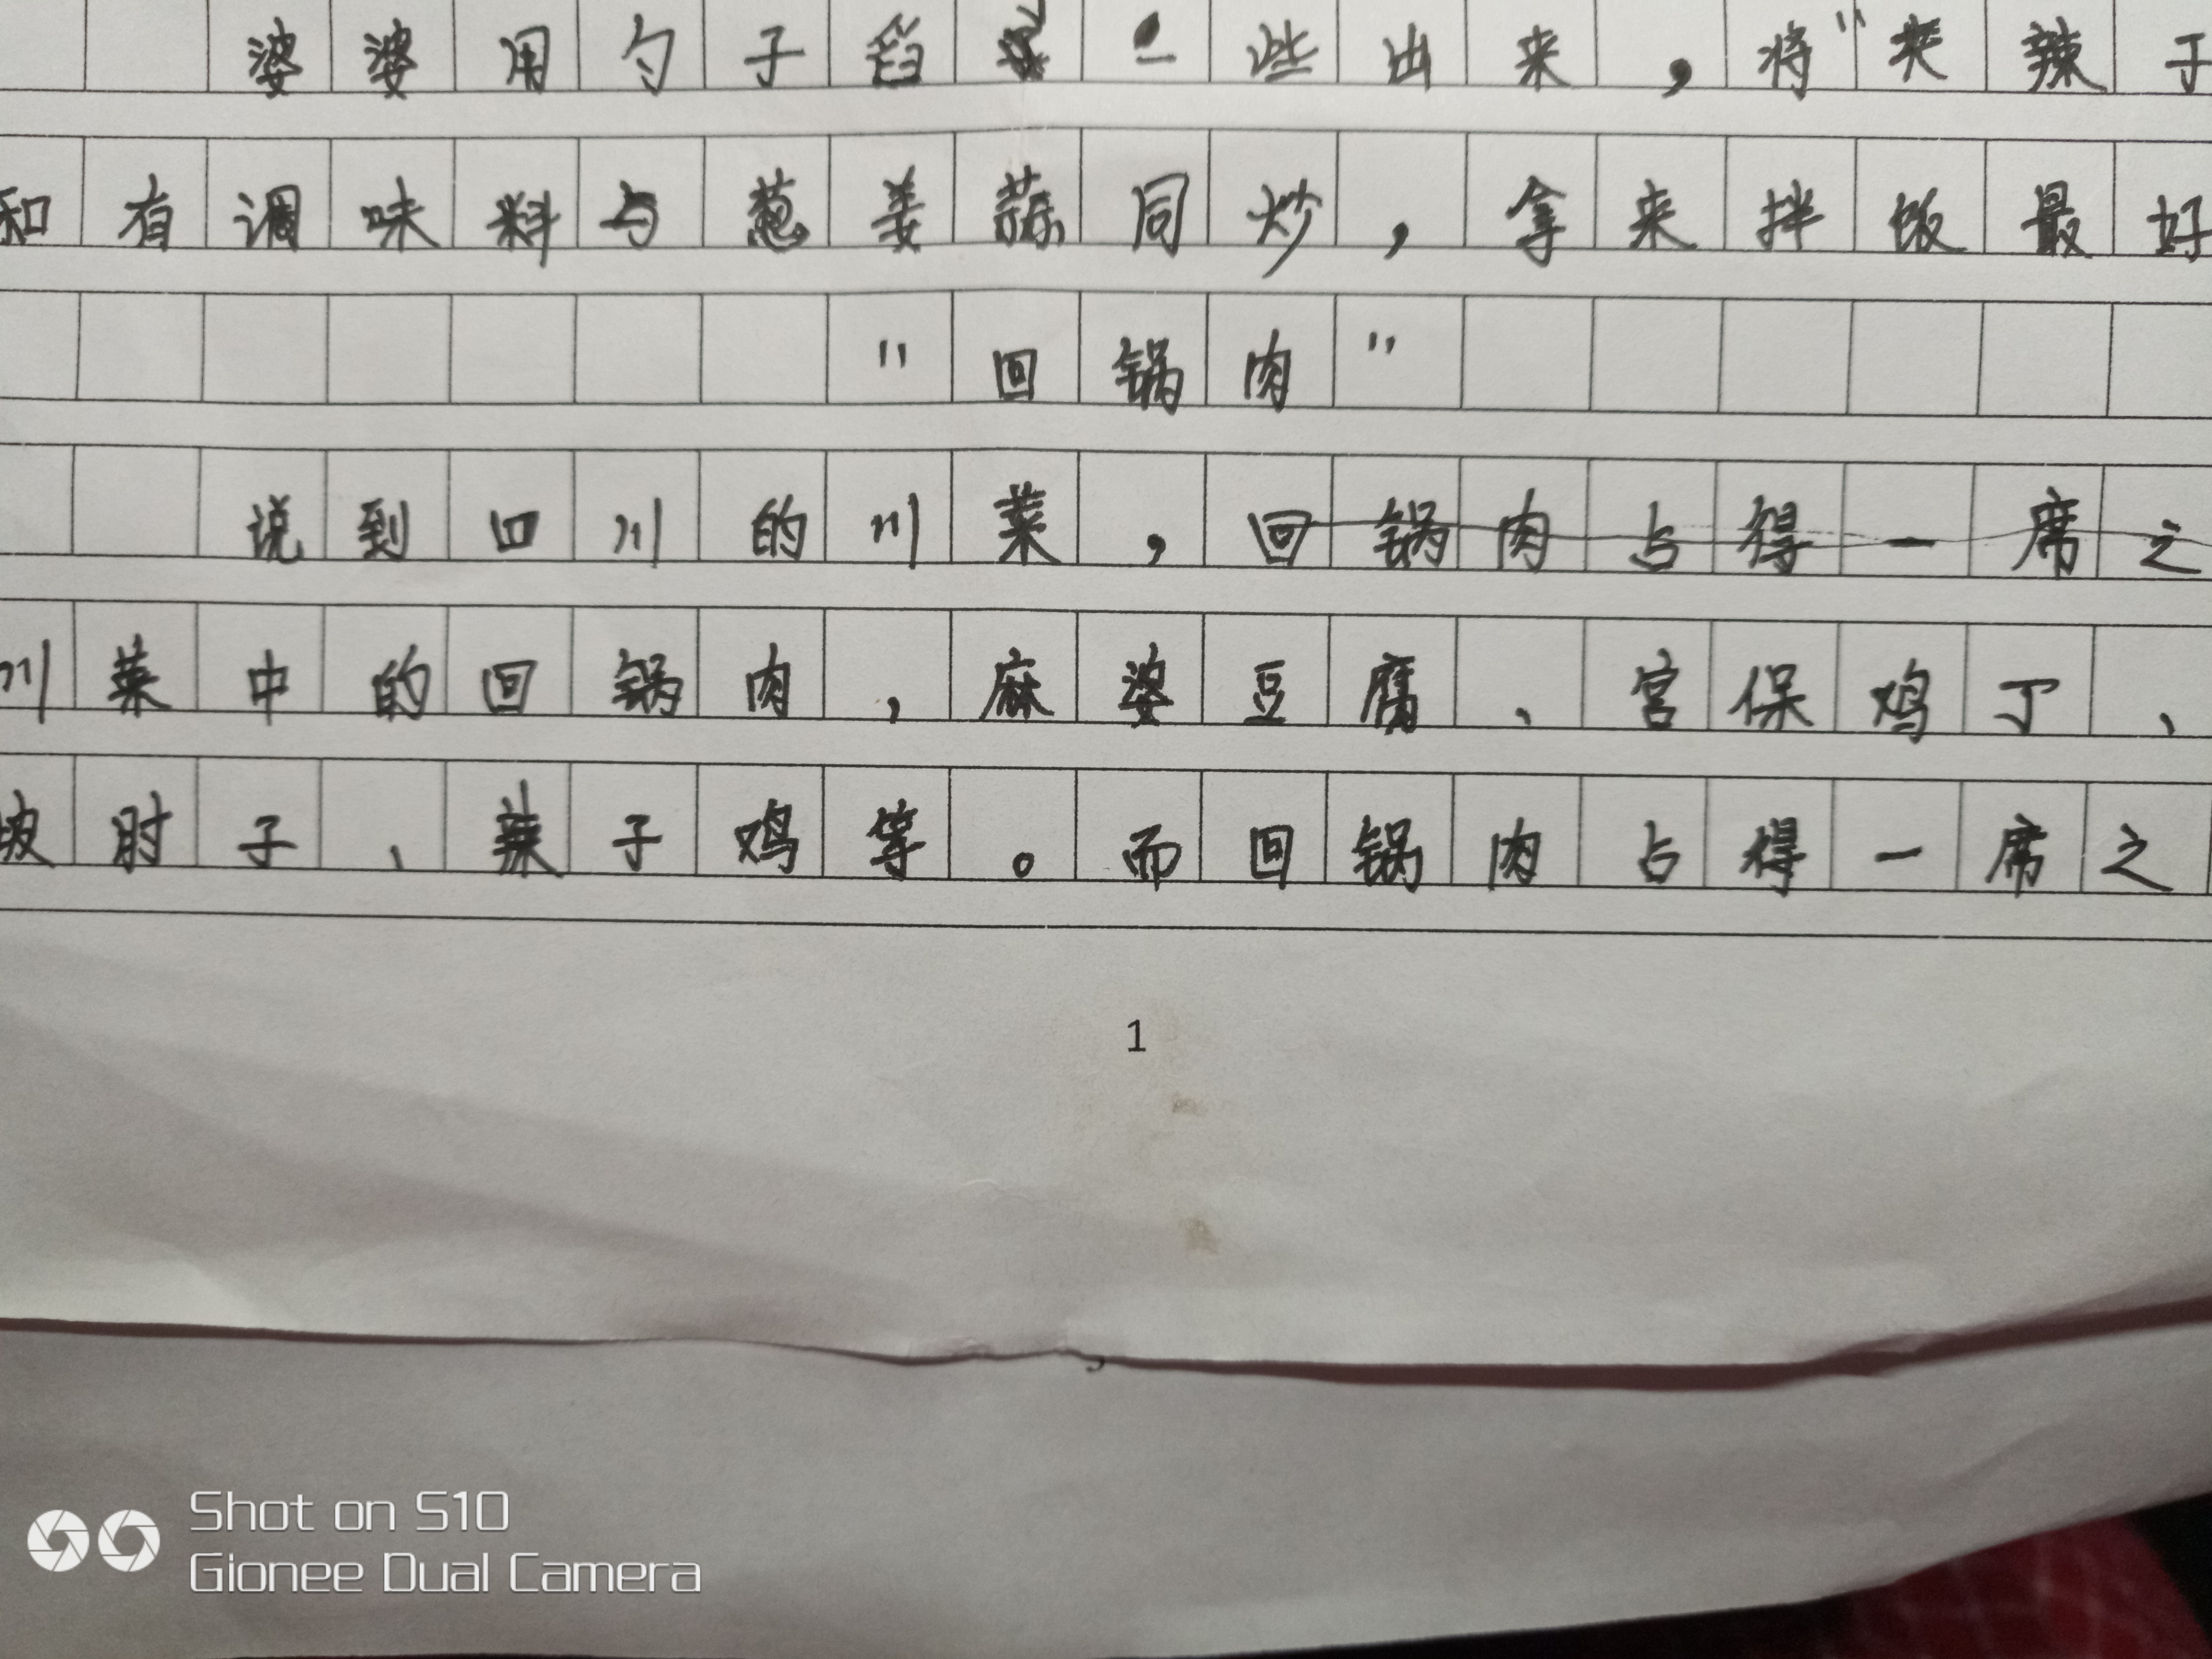 婆婆用勺子舀一些出来，将“夹辣子
和有调味料与葱姜蒜同炒，拿来拌饭最好
“回锅肉”
说到四川的川菜，回锅肉占得一席之
川菜中的回锅肉，麻婆豆腐、宫保鸡丁、
坡肘子、辣子鸡等。而回锅肉占得一席之
1
Shot on S10
Gionee Dual Camera